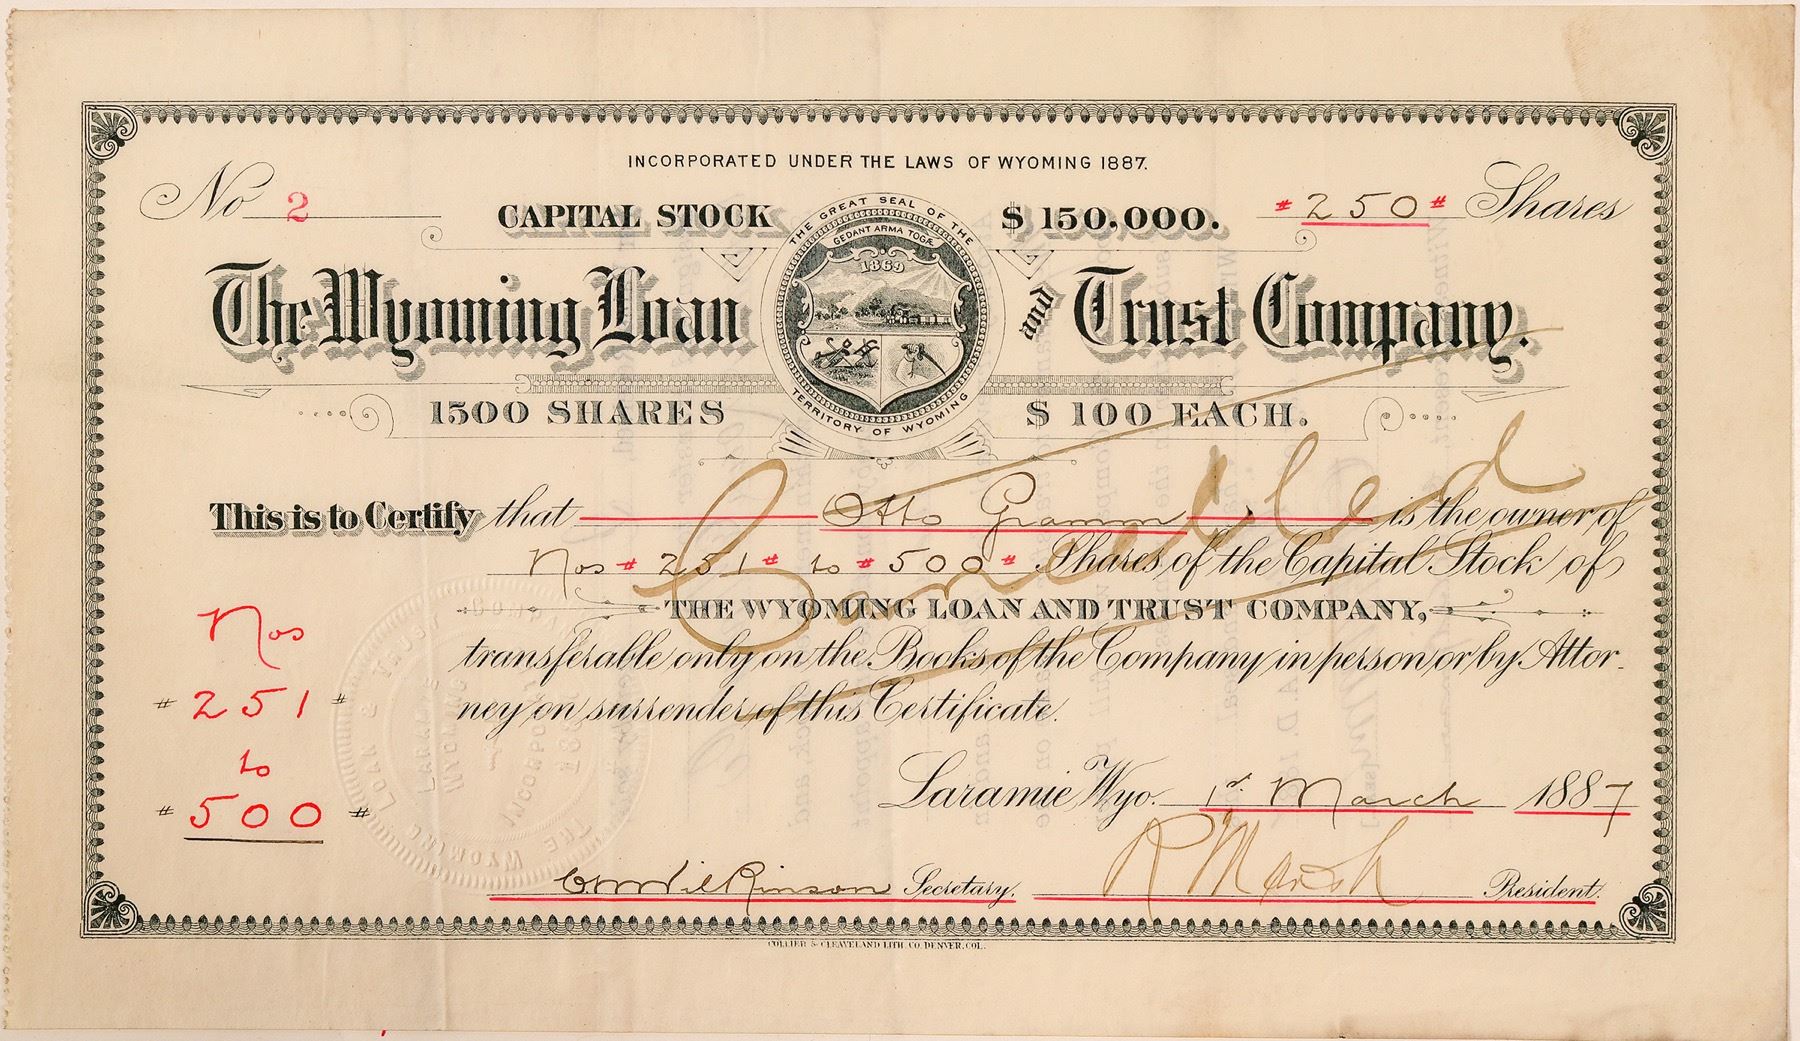 INCORPORATED UNDER THE LAWS OF WYOMING 1887.
No 2
CAPITAL STOCK
$ 150,000.
# 250 # Shares
THE GREAT SEAL OF THE
CEDANT ARMA TOGÆ
1869
TERRITORY OF WYOMING
The Wyoming Loan and Trust Company.
1500 SHARES
$ 100 EACH.
Cancelled
This is to Certify that Otto Gramm is the owner of
Nos # 251 # to # 500 # Shares of the Capital Stock of
THE WYOMING LOAN AND TRUST COMPANY,
transferable only on the Books of the Company in person or by Attor-
ney on surrender of this Certificate.
Nos
# 251 #
to
# 500 #
Laramie Wyo. 1st March 1887
Secretary.
R Marsh President.
COLLIER & CLEAVELAND LITH. CO. DENVER, COL.